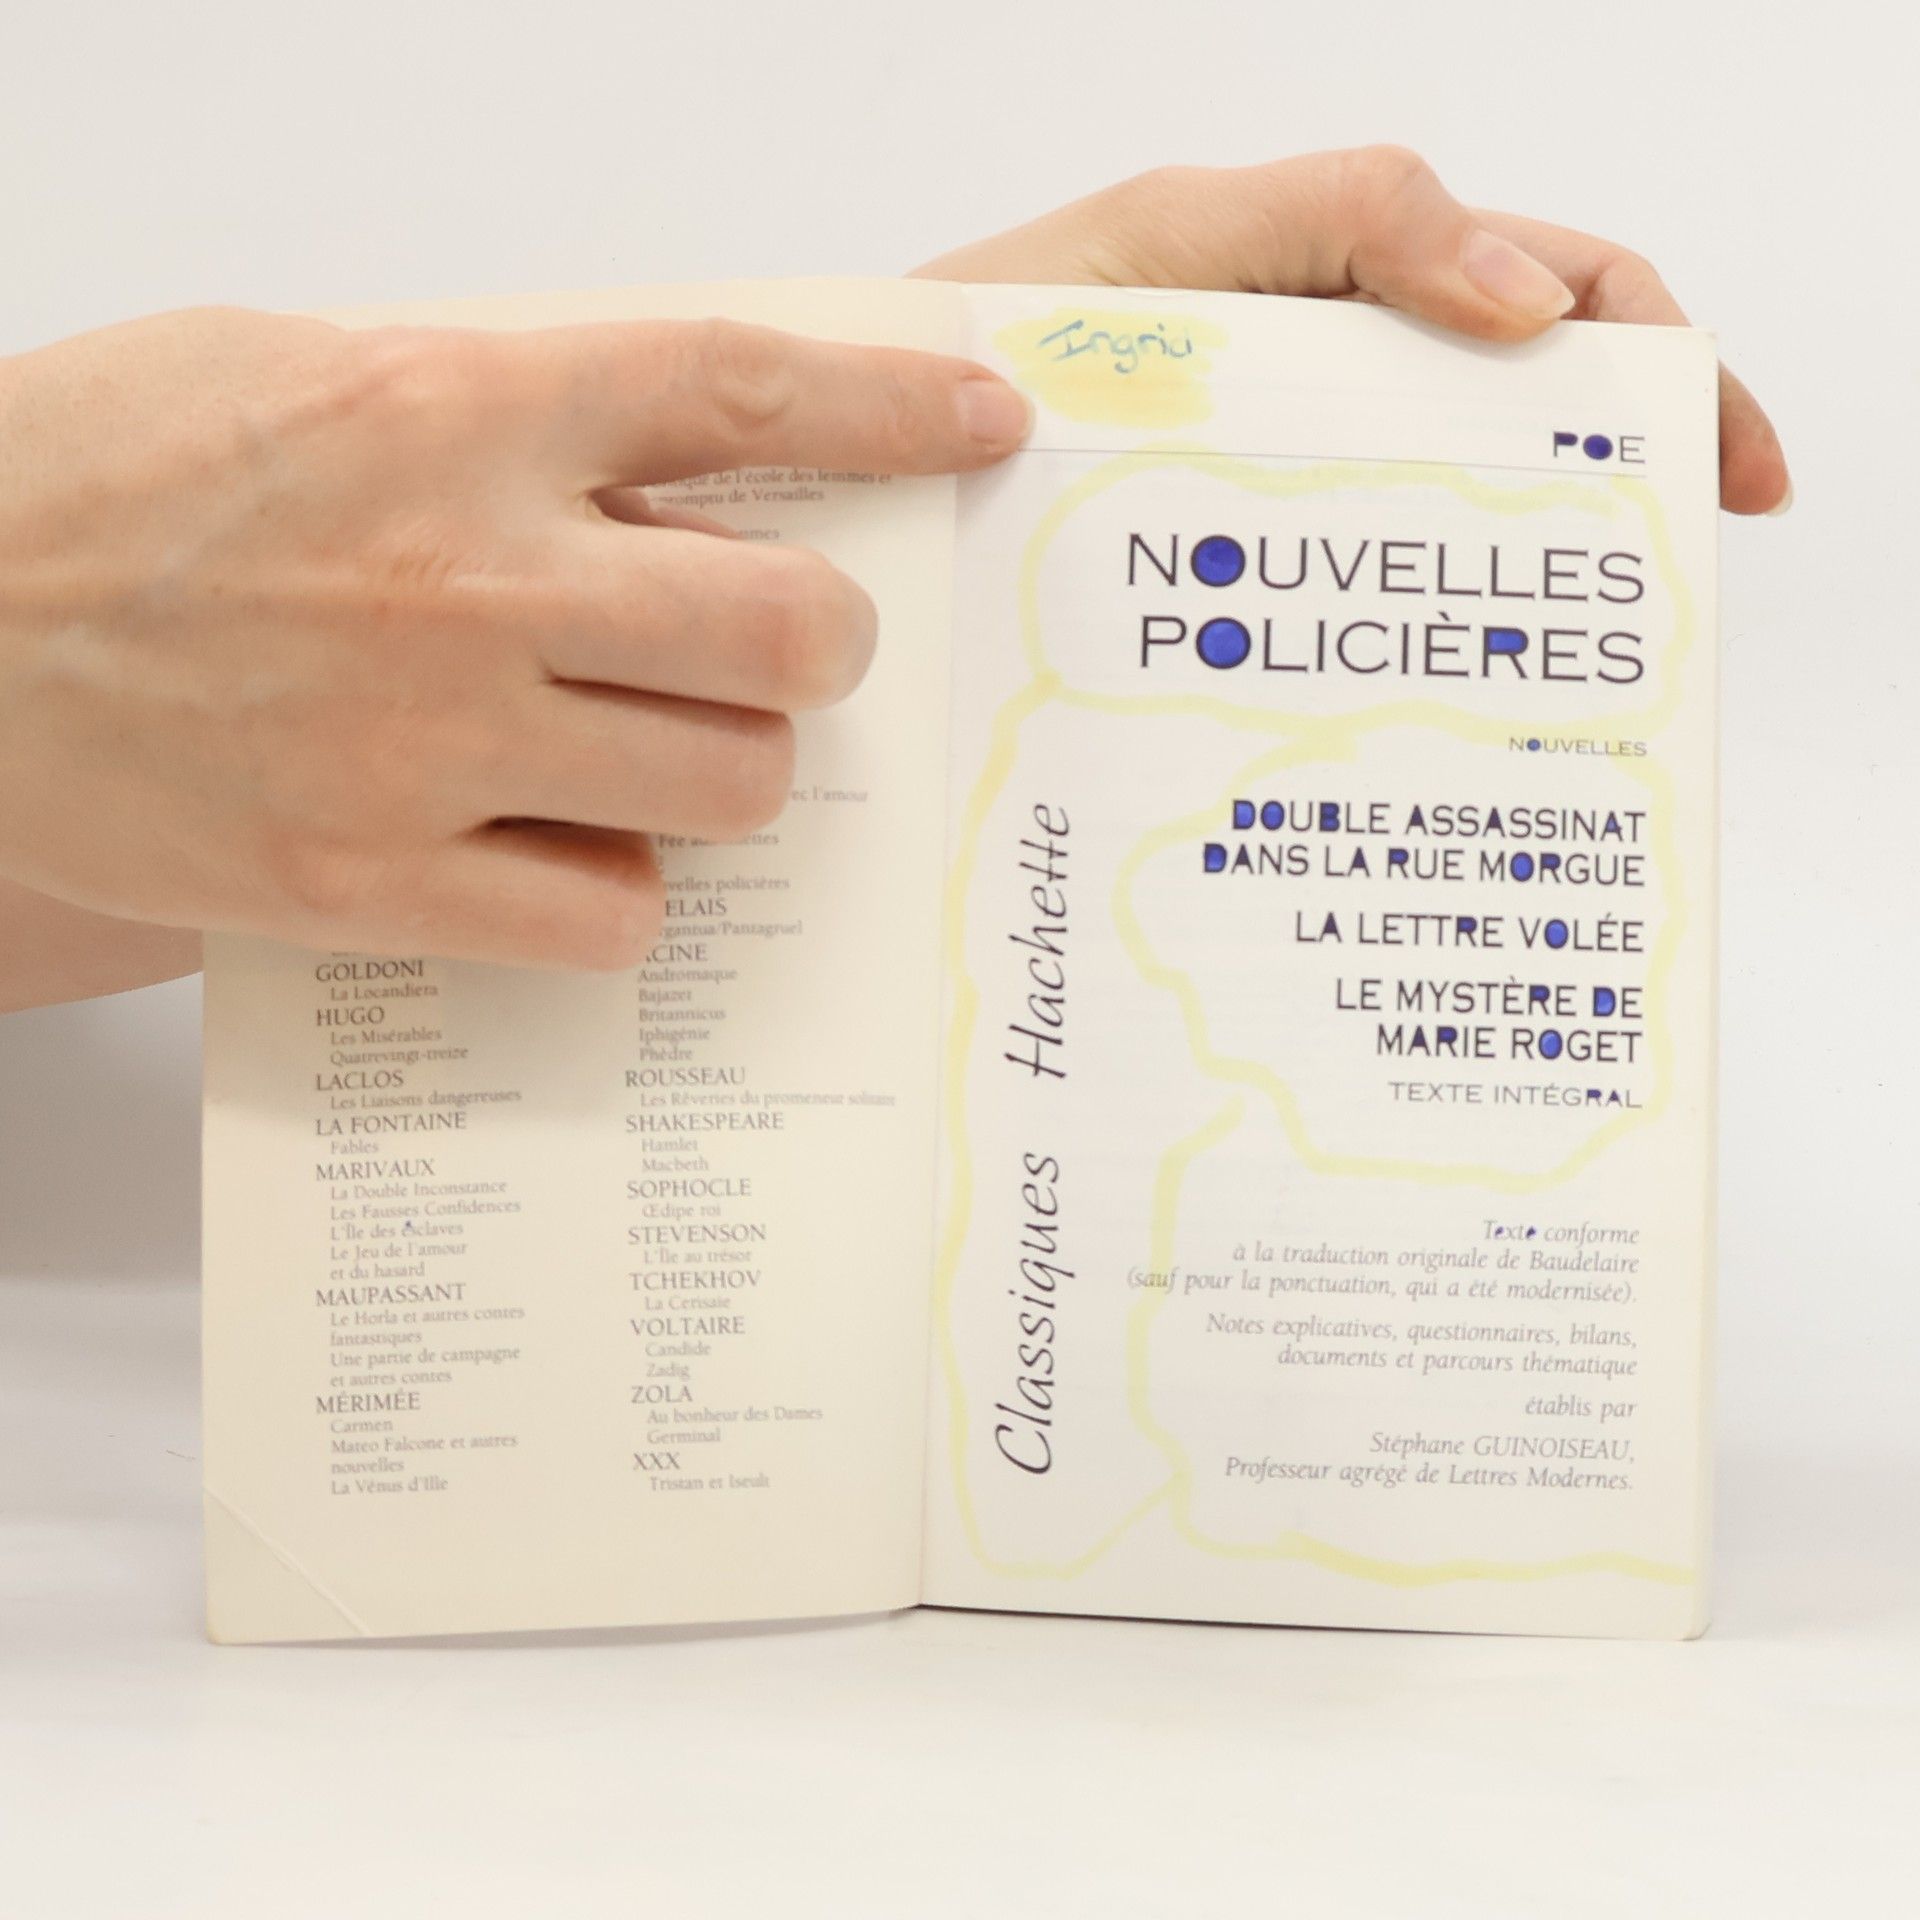 de l'école des femmes et
de Versailles
ec l'amour
policières
Andromaque
Bajazet
Britannicus
Iphigénie
Phèdre
ROUSSEAU
Les Rêveries du promeneur solitaire
SHAKESPEARE
Hamlet
Macbeth
SOPHOCLE
Œdipe roi
STEVENSON
L'Île au trésor
TCHEKHOV
La Cerisaie
VOLTAIRE
Candide
Zadig
ZOLA
Au bonheur des Dames
Germinal
XXX
Tristan et Iseult
GOLDONI
La Locandiera
HUGO
Les Misérables
Quatrevingt-treize
LACLOS
Les Liaisons dangereuses
LA FONTAINE
Fables
MARIVAUX
La Double Inconstance
Les Fausses Confidences
L'Île des esclaves
Le Jeu de l'amour
et du hasard
MAUPASSANT
Le Horla et autres contes
fantastiques
Une partie de campagne
et autres contes
MÉRIMÉE
Carmen
Mateo Falcone et autres
nouvelles
La Vénus d'Ille
Ingrid
POE
NOUVELLES
POLICIÈRES
NOUVELLES
DOUBLE ASSASSINAT
DANS LA RUE MORGUE
LA LETTRE VOLÉE
LE MYSTÈRE DE
MARIE ROGET
TEXTE INTÉGRAL
Classiques Hachette
Texte conforme
à la traduction originale de Baudelaire
(sauf pour la ponctuation, qui a été modernisée).
Notes explicatives, questionnaires, bilans,
documents et parcours thématique
établis par
Stéphane GUINOISEAU,
Professeur agrégé de Lettres Modernes.